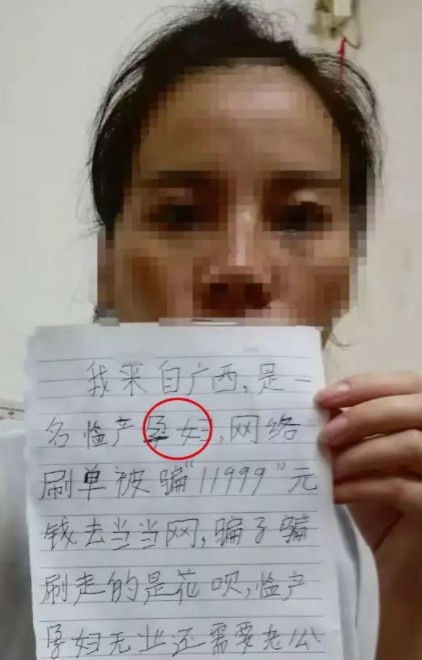 我来自广西，是一
名临产孕妇，网络
刷单被骗“11999”元
钱去当当网，骗子骗
刷走的是花呗，临产
孕妇无业还需要老公